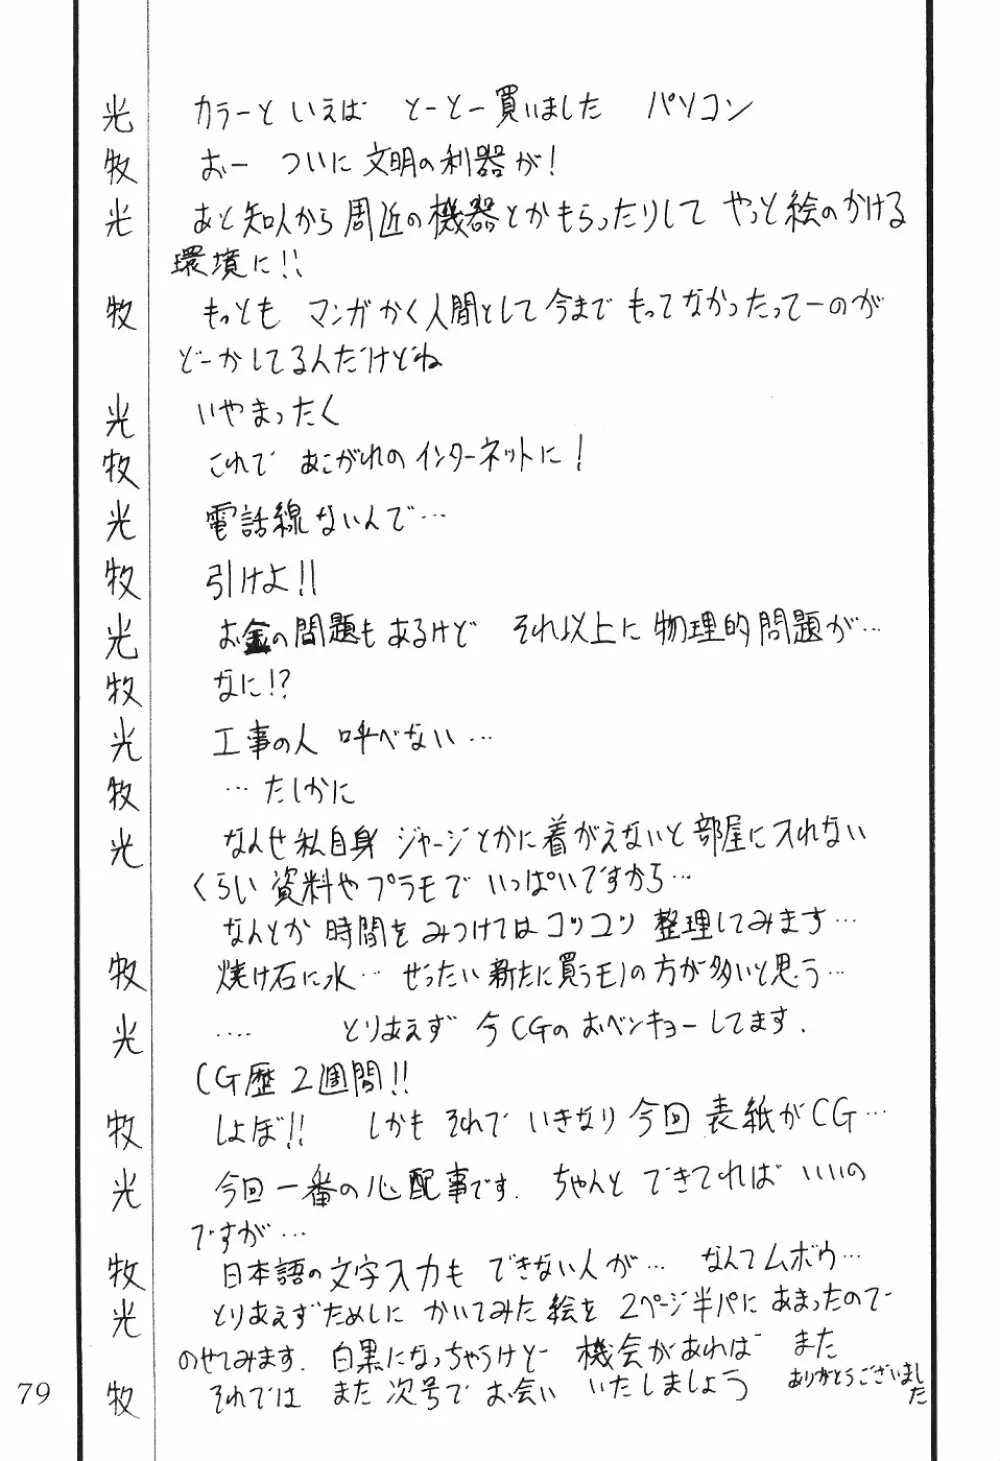 光 カラーといえば とーとー買いました パソコン
牧 おー ついに文明の利器が!
光 あと知人から周辺の機器とかもらったりして やっと絵のかける
環境に!!
牧 もっとも マンガかく人間として今まで もってなかったってーのが
どーかしてるんだけどね
光 いやまったく
牧 これで あこがれのインターネットに!
光 電話線ないんで…
牧 引けよ!!
光 お金の問題もあるけど それ以上に物理的問題が…
牧 なに!?
光 工事の人 呼べない…
牧 …たしかに
光 なんせ私自身 ジャージとかに着がえないと部屋に入れない
くらい資料やプラモで いっぱいですから…
なんとか時間をみつけてはコツコツ 整理してみます…
牧 焼け石に水… ぜったい新たに買うモノの方が多いと思う…
光 ‥‥ とりあえず 今CGのおベンキョーしてます.
CG歴2週間!!
牧 しょぼ!! しかも それで いきなり今回 表紙がCG…
光 今回一番の心配事です. ちゃんと できてれば いいの
ですが…
牧 日本語の文字入力も できない人が… なんてムボウ…
光 とりあえずためしに かいてみた絵を 2ページ半パにあまったので
のせてみます. 白黒になっちゃうけどー 機会があれば また
牧 それでは また次号で お会い いたしましょう ありがとうございまし
た
79